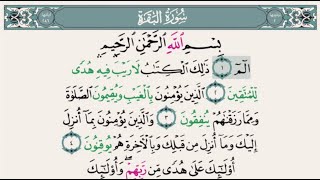 سُورَةُ البَقَرَةِ
بِسْمِ اللَّهِ الرَّحْمَٰنِ الرَّحِيمِ
الٓمٓ ١ ذَٰلِكَ الْكِتَٰبُ لَا رَيْبَ فِيهِ هُدًى
لِّلْمُتَّقِينَ ٢ الَّذِينَ يُؤْمِنُونَ بِالْغَيْبِ وَيُقِيمُونَ الصَّلَوٰةَ
وَمِمَّا رَزَقْنَٰهُمْ يُنفِقُونَ ٣ وَالَّذِينَ يُؤْمِنُونَ بِمَا أُنزِلَ
إِلَيْكَ وَمَا أُنزِلَ مِن قَبْلِكَ وَبِالْآخِرَةِ هُمْ يُوقِنُونَ ٤
أُولَٰئِكَ عَلَىٰ هُدًى مِّن رَّبِّهِمْ ۖ وَأُولَٰئِكَ